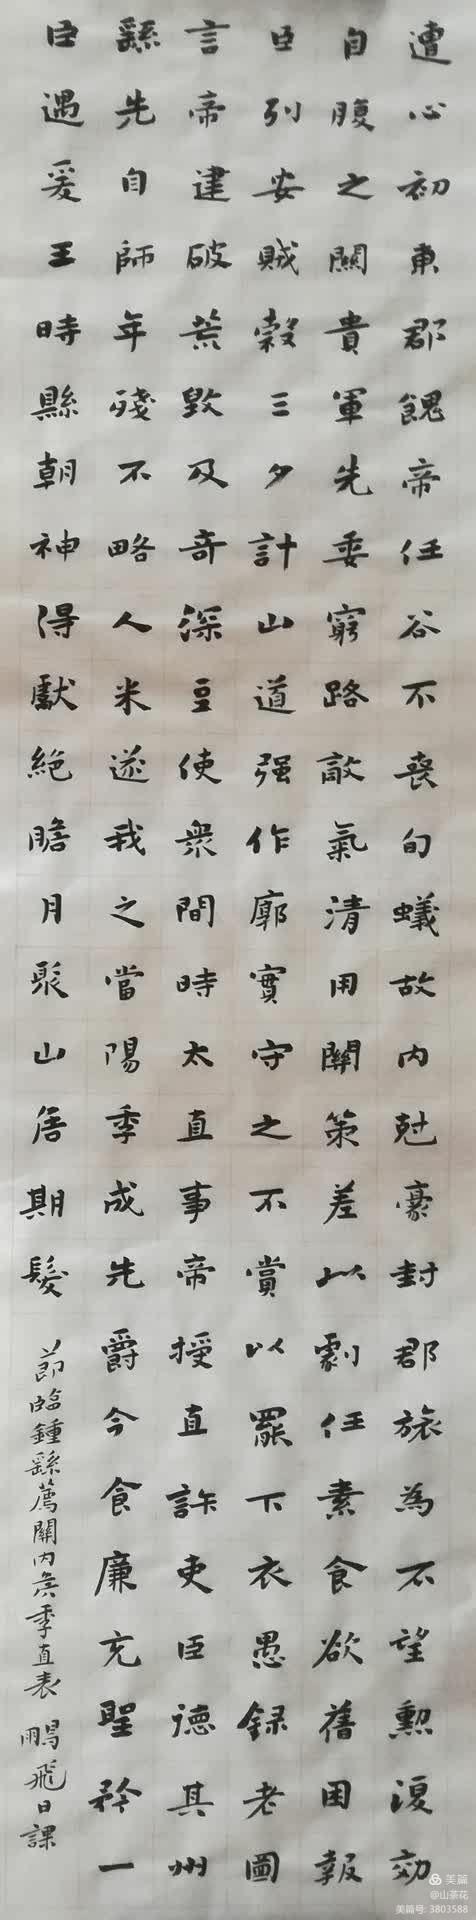 臣繇言臣自遭
遇先帝列腹心
爰自建安之初
王師破賊關東
時年荒穀貴郡
縣殘毀三軍餽
朝不及夕先帝
神略奇計委任
得人深山窮谷
獻米豆道路不
絕遂使强敵喪
膽我眾作氣旬
月之間廓清蟻
聚當時實用故
山陽太守關內
侯季直之策剋
期成事不差豪
髮先帝賞以封
爵授以劇郡
今直罷任旅
食許下素為
廉吏衣食不
充臣愚欲望
聖德録舊勳
矜其老困復
一州圖報効
節臨鍾繇薦關內侯季直表 鵬飛日課
美篇
@山茶花
美篇号: 3803588